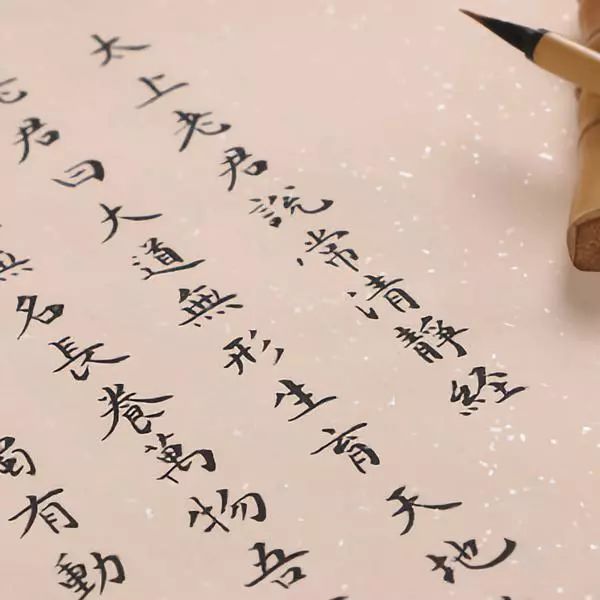 太上老君說常清靜經
老君曰大道無形生育天地
無名長養萬物吾
有動